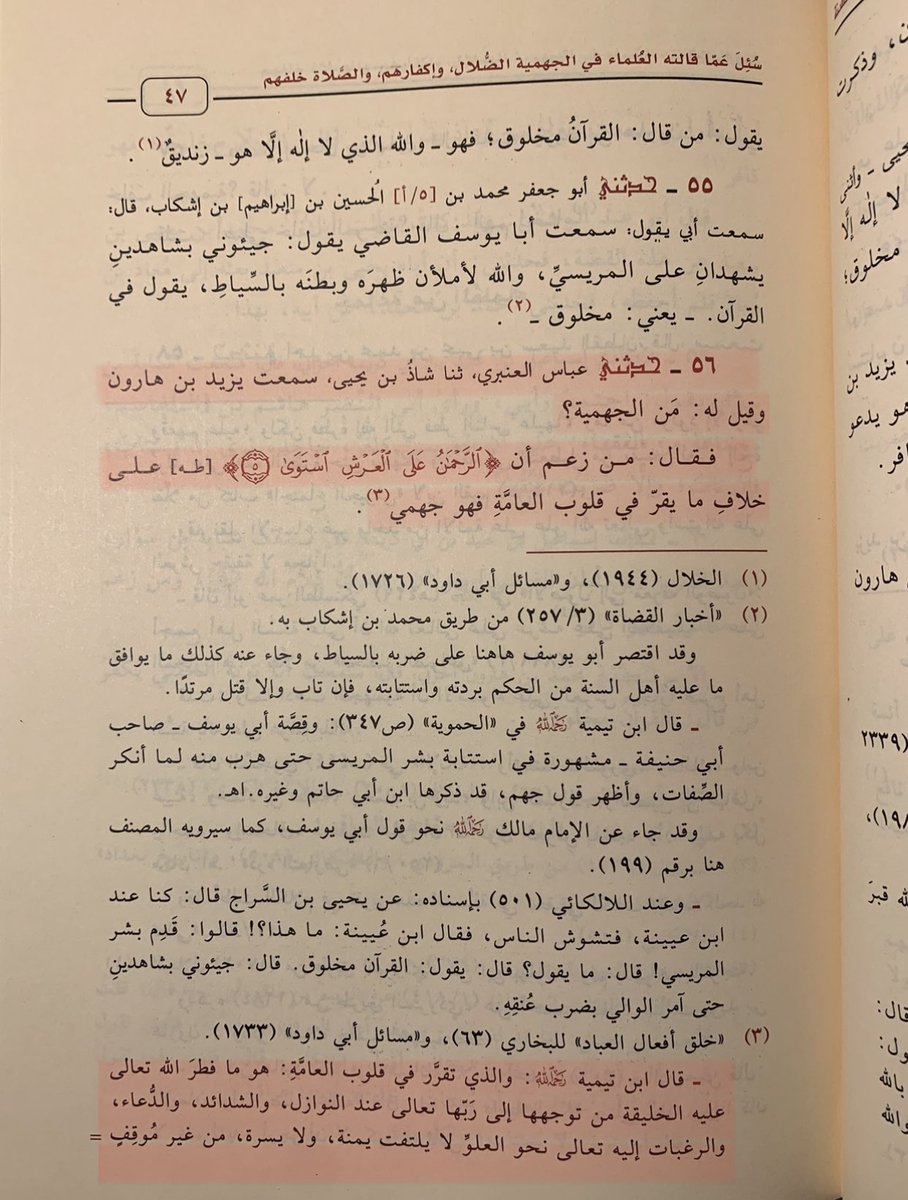 سُئِلَ عَمّا قالته العُلماء في الجهمية الضُّلال، وإكفارهم، والصَّلاة خلفهم
٤٧
يقول: من قال: القرآنُ مخلوق؛ فهو ـ والله الذي لا إلٰه إلَّا هو ـ زنديقٌ(١).
٥٥ ـ حدثني أبو جعفر محمد بن [٥/أ] الحُسين بن [إبراهيم] بن إشكاب، قال:
سمعت أبي يقول: سمعت أبا يوسف القاضي يقول: جيئوني بشاهدينِ
يشهدانِ على المريسيِّ، والله لأملأن ظهرَه وبطنَه بالسِّياطِ، يقول في
القرآن. ـ يعني: مخلوق ـ(٢).
٥٦ ـ حدثني عباس العنبري، ثنا شاذُ بن يحيى، سمعت يزيد بن هارون
وقيل له: مَن الجهمية؟
فقال: من زعم أن ﴿ٱلرَّحْمَٰنُ عَلَى ٱلْعَرْشِ ٱسْتَوَىٰ ۝٥﴾ [طه] على
خلافِ ما يقرّ في قلوب العامَّةِ فهو جهمي(٣).
(١) الخلال (١٩٤٤)، و«مسائل أبي داود» (١٧٢٦).
(٢) «أخبار القضاة» (٢٥٧/٣) من طريق محمد بن إشكاب به.
وقد اقتصر أبو يوسف هاهنا على ضربه بالسياط، وجاء عنه كذلك ما يوافق
ما عليه أهل السنة من الحكم بردته واستتابته، فإن تاب وإلا قتل مرتدًا.
ـ قال ابن تيمية رحمه الله في «الحموية» (ص٣٤٧): وقِصَّة أبي يوسف ـ صاحب
أبي حنيفة ـ مشهورة في استتابة بشر المريسي حتى هرب منه لما أنكر
الصِّفات، وأظهر قول جهم، قد ذكرها ابن أبي حاتم وغيره.اهـ.
وقد جاء عن الإمام مالك رحمه الله نحو قول أبي يوسف، كما سيرويه المصنف
هنا برقم (١٩٩).
ـ وعند اللالكائي (٥٠١) بإسناده: عن يحيى بن السَّراج قال: كنا عند
ابن عيينة، فتشوش الناس، فقال ابن عُيينة: ما هذا؟! قالوا: قَدِم بشر
المريسي! قال: ما يقول؟ قال: يقول: القرآن مخلوق. قال: جيئوني بشاهدينِ
حتى آمر الوالي بضرب عُنقِهِ.
(٣) «خلق أفعال العباد» للبخاري (٦٣)، و«مسائل أبي داود» (١٧٣٣).
ـ قال ابن تيمية رحمه الله: والذي تقرَّر في قلوب العامَّةِ: هو ما فطرَ الله تعالى
عليه الخليقة من توجهها إلى رَبّها تعالى عند النوازل، والشدائد، والدُّعاء،
والرغبات إليه تعالى نحو العلوِّ لا يلتفت يمنة، ولا يسرة، من غير مُوقِفٍ =